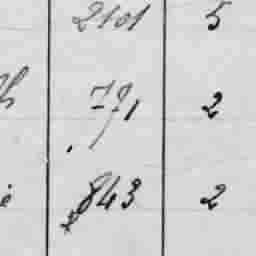 2101 5
771 2
843 2